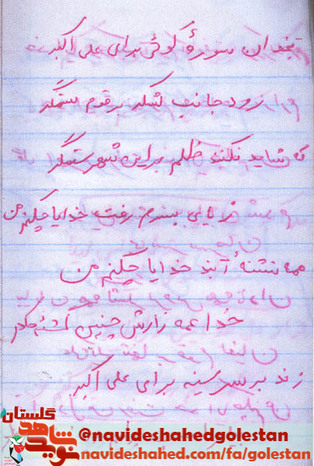 بخوان سوره کوثر برای علی اکبر
زود جانب لشکر بر قوم ستمگر
که شاید نکند ظلم براین شهر ستمگر
بسرم رفت خدایا چکنم من
همه تشنه آبند خدایا چکنم من
خدا عمه زارش چنین
زند بر سر سینه برای علی اکبر
گلستان
نوید شاهد
@navideshahedgolestan
navideshahed.com/fa/golestan